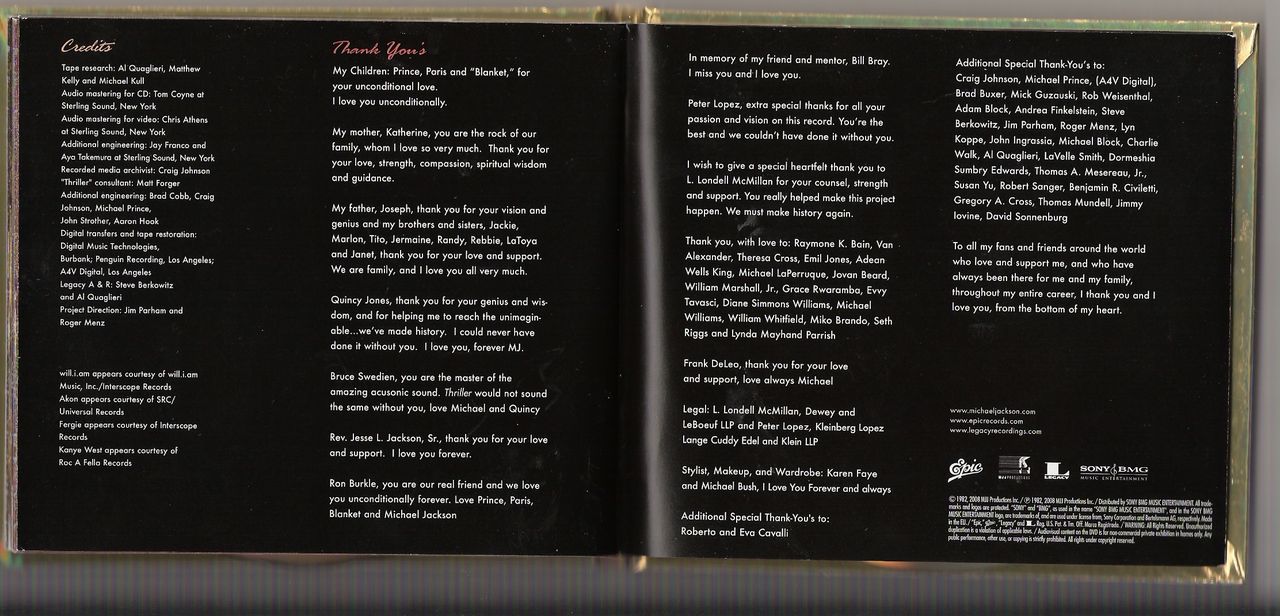 Credits
Tape research: Al Quaglieri, Matthew
Kelly and Michael Kull
Audio mastering for CD: Tom Coyne at
Sterling Sound, New York
Audio mastering for video: Chris Athens
at Sterling Sound, New York
Additional engineering: Jay Franco and
Aya Takemura at Sterling Sound, New York
Recorded media archivist: Craig Johnson
"Thriller" consultant: Matt Forger
Additional engineering: Brad Cobb, Craig
Johnson, Michael Prince,
John Strother, Aaron Hook
Digital transfers and tape restoration:
Digital Music Technologies,
Burbank; Penguin Recording, Los Angeles;
A4V Digital, Los Angeles
Legacy A & R: Steve Berkowitz
and Al Quaglieri
Project Direction: Jim Parham and
Roger Menz
will.i.am appears courtesy of will.i.am
Music, Inc./Interscope Records
Akon appears courtesy of SRC/
Universal Records
Fergie appears courtesy of Interscope
Records
Kanye West appears courtesy of
Roc A Fella Records
Thank You's
My Children: Prince, Paris and "Blanket," for
your unconditional love.
I love you unconditionally.
My mother, Katherine, you are the rock of our
family, whom I love so very much. Thank you for
your love, strength, compassion, spiritual wisdom
and guidance.
My father, Joseph, thank you for your vision and
genius and my brothers and sisters, Jackie,
Marlon, Tito, Jermaine, Randy, Rebbie, LaToya
and Janet, thank you for your love and support.
We are family, and I love you all very much.
Quincy Jones, thank you for your genius and wis-
dom, and for helping me to reach the unimagin-
able...we've made history. I could never have
done it without you. I love you, forever MJ.
Bruce Swedien, you are the master of the
amazing acusonic sound. Thriller would not sound
the same without you, love Michael and Quincy
Rev. Jesse L. Jackson, Sr., thank you for your love
and support. I love you forever.
Ron Burkle, you are our real friend and we love
you unconditionally forever. Love Prince, Paris,
Blanket and Michael Jackson
In memory of my friend and mentor, Bill Bray.
I miss you and I love you.
Peter Lopez, extra special thanks for all your
passion and vision on this record. You're the
best and we couldn't have done it without you.
I wish to give a special heartfelt thank you to
L. Londell McMillan for your counsel, strength
and support. You really helped make this project
happen. We must make history again.
Thank you, with love to: Raymone K. Bain, Van
Alexander, Theresa Cross, Emil Jones, Adean
Wells King, Michael LaPerruque, Jovan Beard,
William Marshall, Jr., Grace Rwaramba, Evvy
Tavasci, Diane Simmons Williams, Michael
Williams, William Whitfield, Miko Brando, Seth
Riggs and Lynda Mayhand Parrish
Frank DeLeo, thank you for your love
and support, love always Michael
Legal: L. Londell McMillan, Dewey and
LeBoeuf LLP and Peter Lopez, Kleinberg Lopez
Lange Cuddy Edel and Klein LLP
Stylist, Makeup, and Wardrobe: Karen Faye
and Michael Bush, I Love You Forever and always
Additional Special Thank-You's to:
Roberto and Eva Cavalli
Additional Special Thank-You's to:
Craig Johnson, Michael Prince, (A4V Digital),
Brad Buxer, Mick Guzauski, Rob Weisenthal,
Adam Block, Andrea Finkelstein, Steve
Berkowitz, Jim Parham, Roger Menz, Lyn
Koppe, John Ingrassia, Michael Block, Charlie
Walk, Al Quaglieri, LaVelle Smith, Dormeshia
Sumbry Edwards, Thomas A. Mesereau, Jr.,
Susan Yu, Robert Sanger, Benjamin R. Civiletti,
Gregory A. Cross, Thomas Mundell, Jimmy
Iovine, David Sonnenburg
To all my fans and friends around the world
who love and support me, and who have
always been there for me and my family,
throughout my entire career, I thank you and I
love you, from the bottom of my heart.
www.michaeljackson.com
www.epicrecords.com
www.legacyrecordings.com
Epic
MJJ PRODUCTIONS
LEGACY
SONY BMG
MUSIC ENTERTAINMENT
© 1982, 2008 MJJ Productions Inc. / ℗ 1982, 2008 MJJ Productions Inc. / Distributed by SONY BMG MUSIC ENTERTAINMENT. All trade-
marks and logos are protected. "SONY" and "BMG", as used in the name "SONY BMG MUSIC ENTERTAINMENT", and in the SONY BMG
MUSIC ENTERTAINMENT logo, are trademarks of, and are used under license from, Sony Corporation and Bertelsmann AG, respectively. Made
in the EU. / "Epic," "Legacy" and L Reg. U.S. Pat. & Tm. Off. Marca Registrada. / WARNING: All Rights Reserved. Unauthorized
duplication is a violation of applicable laws. / Audiovisual content on the DVD is for non-commercial private exhibition in homes only. Any
public performance, other use, or copying is strictly prohibited. All rights under copyright reserved.